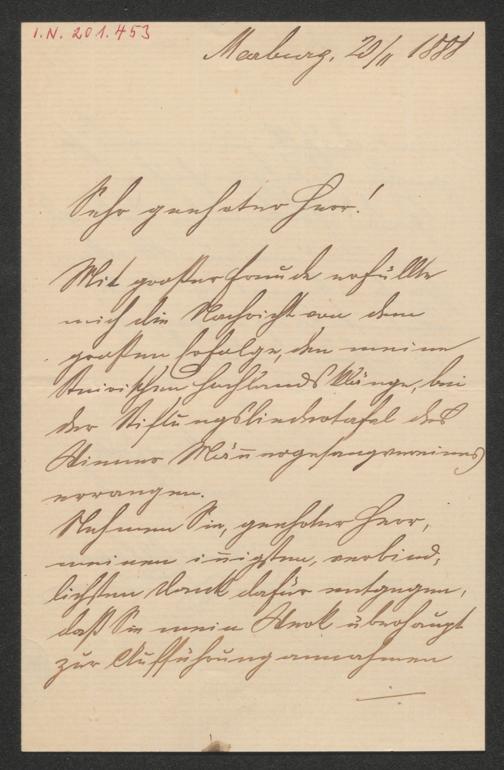 I.N. 201.453
Marburg, 20/11 1888
Sehr geehrter Herr!
Mit großer Freude erfüllte
mich die Nachricht von dem
großen Erfolge, den meine
steirischen Hochlandsklänge, bei
der Stiftungsliedertafel des
Wiener Mäñergesangvereines
errangen.
Nehmen Sie, geehrter Herr,
meinen iñigsten, verbind-
lichsten Dank dafür entgegen,
daß Sie mein Werk überhaupt
zur Aufführung annahmen